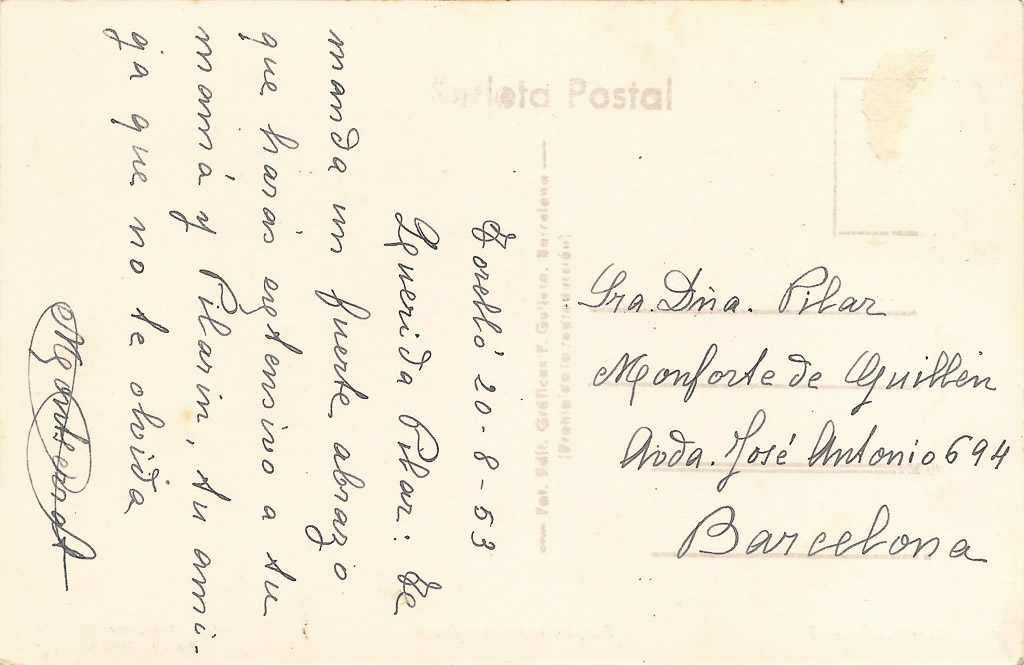 Tarjeta Postal
Torelló 20-8-53
Querida Pilar: Te
manda un fuerte abrazo
que harás extensivo a tu
mamá y Pilarin, tu ami-
ga que no te olvida
Montserrat
Fot. Edit. Gráficas F. Guilera. Barcelona
(Prohibida la reproducción)
Sra. Dña. Pilar
Monforte de Guillén
Avda. José Antonio 694
Barcelona